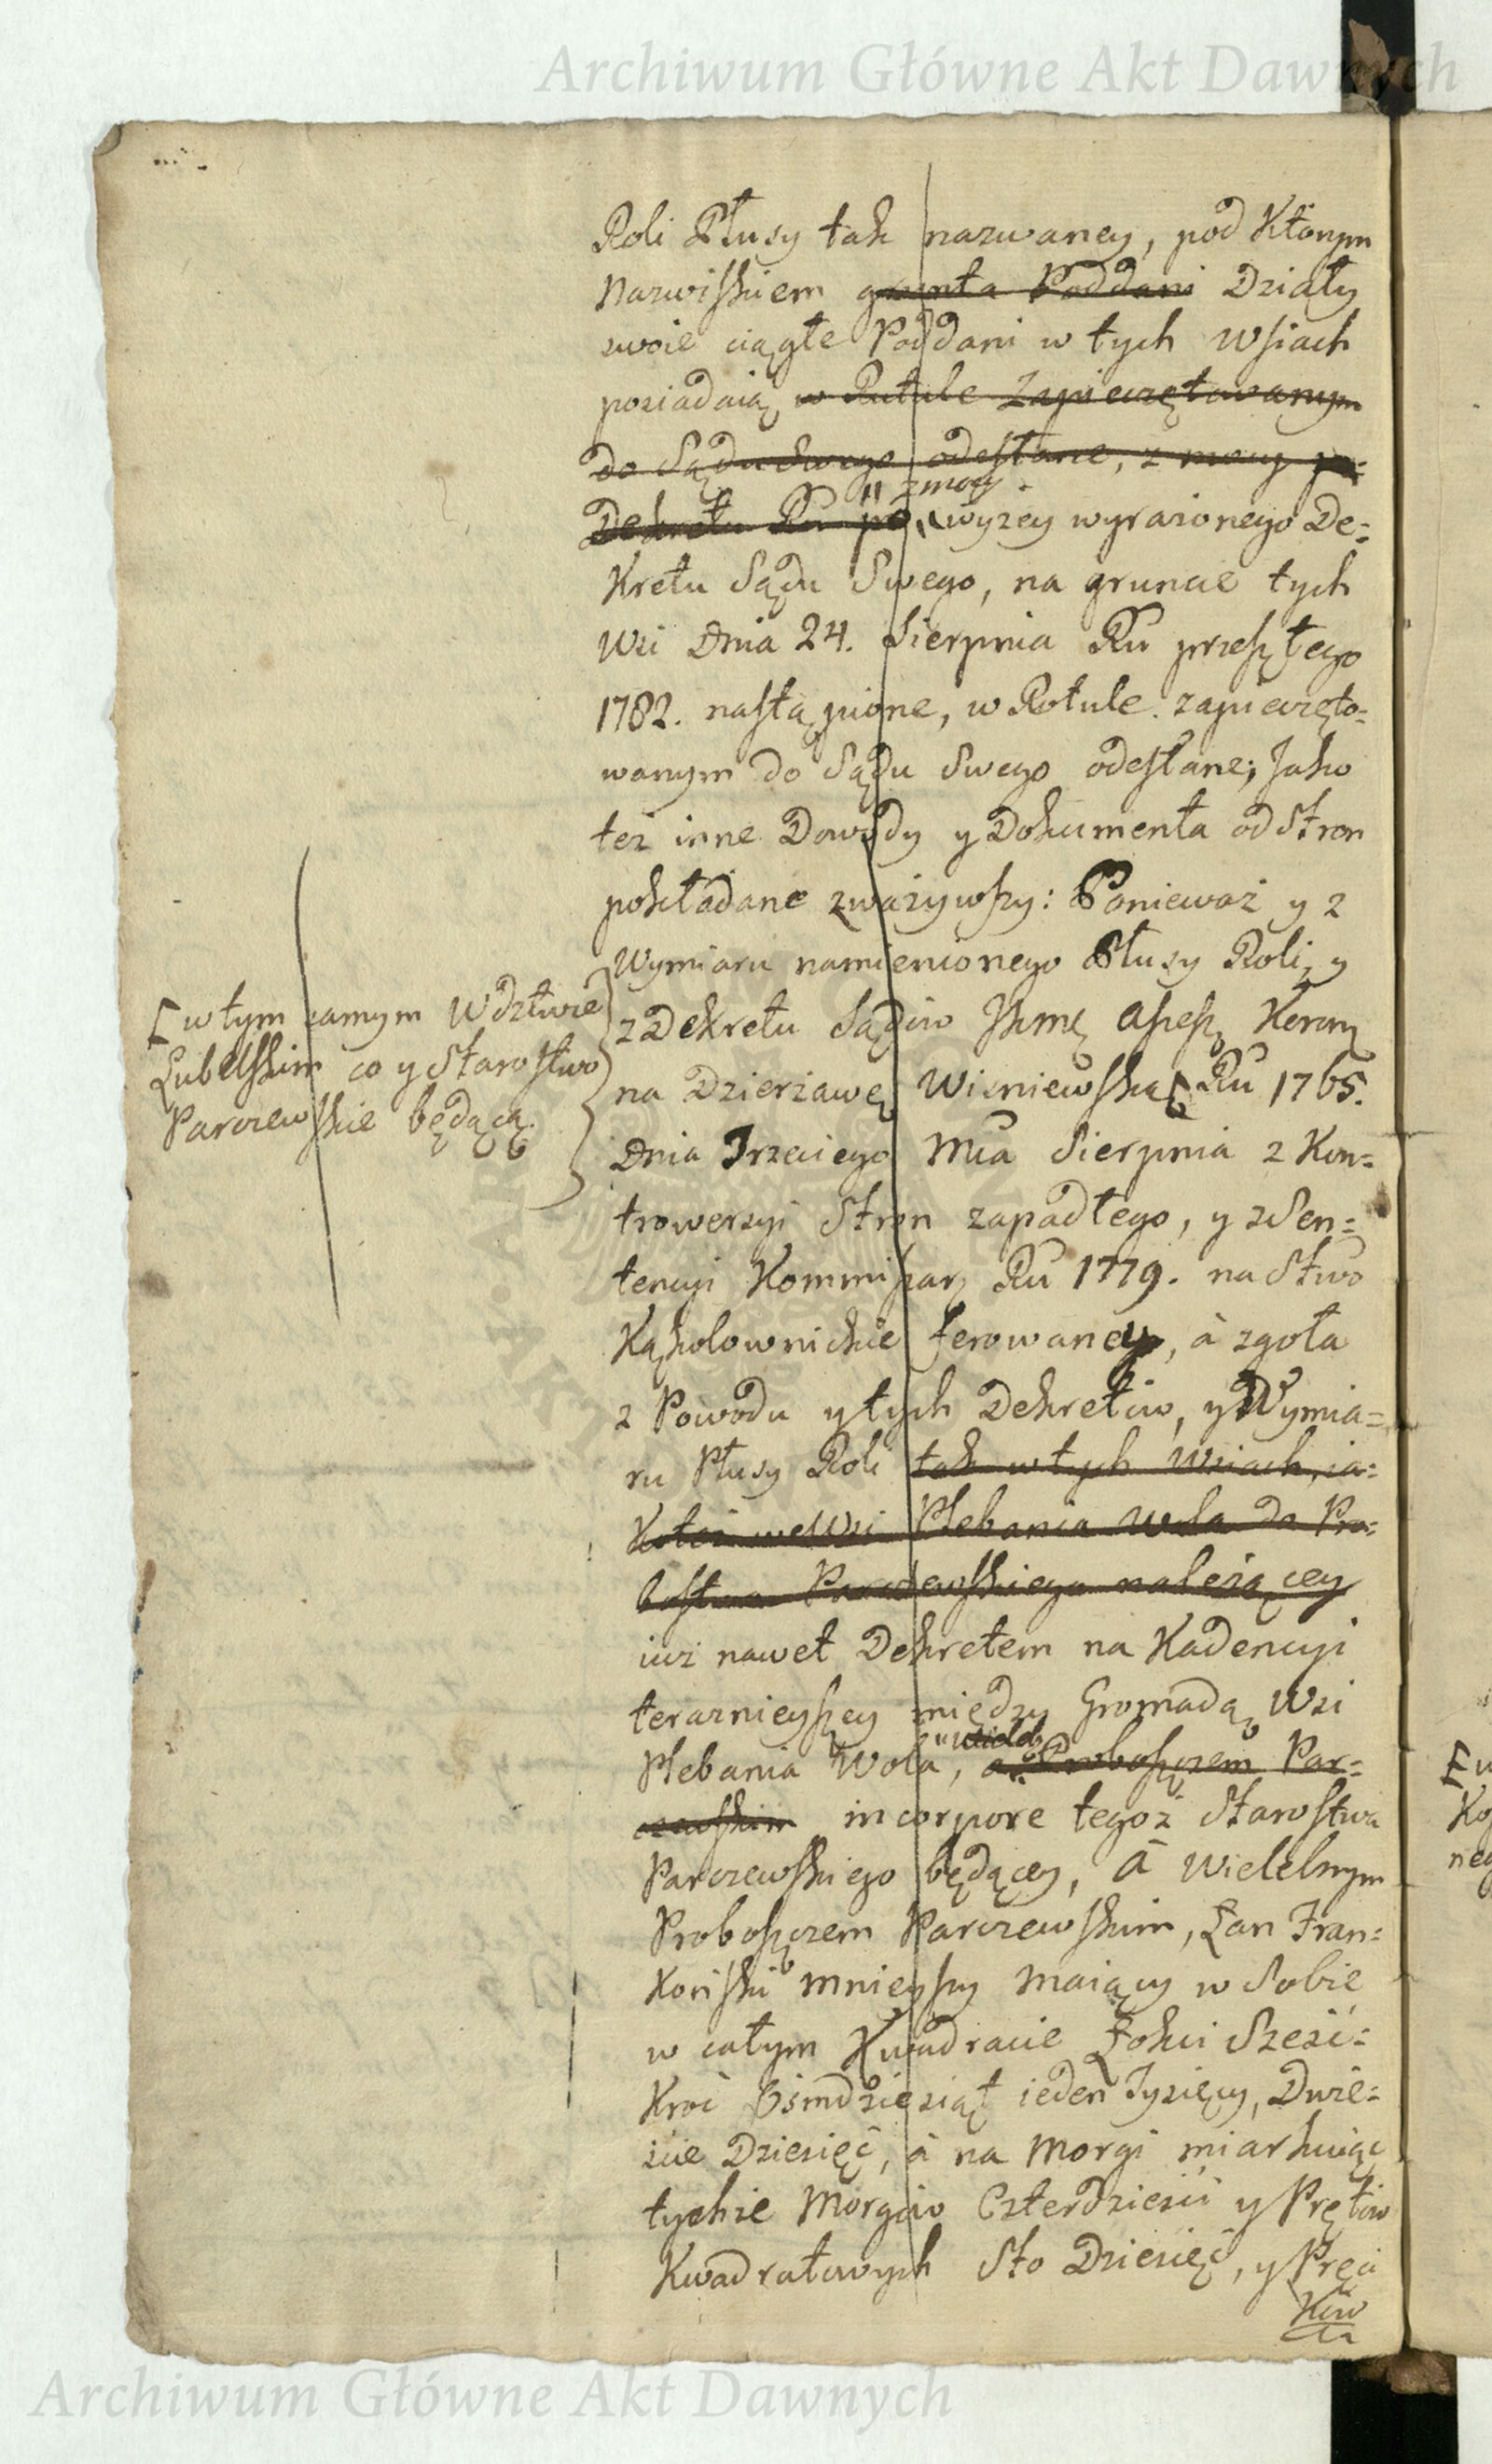 Archiwum Główne Akt Dawnych
Roli Płusy tak nazwaney, pod Ktorym
Nazwiskiem grunta Poddani Działy
swoie ciągłe Poddani w tych Wsiach
posiadaią w Rotule Zapieczętowanym
do Sądu Swego odesłane, z mocy po=
z mocy
Dekretu Ru po wyzey wyrazonego De=
Kretu Sądu Swego, na gruncie tych
Wsi Dnia 24. Sierpnia Ru przeszłego
1782. nastąpione, w Rotule zapieczęto=
wanym do Sądu Swego odesłane; Jako
tez inne Dowody y Dokumenta od Stron
pokładane zwazywszy: Poniewaz y z
Wymiaru namienionego Płusy Roli, y
[ w tym samym Wdztwie
Lubelskim co y Starostwo
Parczewskie będącą.
z Dekretu Sądów Jkmę Assess Koronn
na Dzierzawę Wisniewską [ Ru 1765.
Dnia Trzeciego Mca Sierpnia z Kon=
trowersyi Stron zapadłego, y z Sen=
tencyi Kommissar Ru 1779. na Stwo
Kąkolownickie ferowaney, à zgoła
z Powodu y tych Dekretów, y Wymia=
ru Płusy Roli tak w tych Wsiach, ia=
Kotez we Wsi Plebania Wola do Pro=
bostwa Parczewskiego nalezącey
iuz nawet Dekretem na Kadencyi
teraznieyszey między Gromadą Wsi
Wieleb
Plebania Wola, a Proboszczem Par=
czewskim in corpore tegoz Starostwa
Parczewskiego będącey, à Wielebnym
Proboszczem Parczewskim, Łan Fran=
Konski mnieyszy maiący w Sobie
w całym Kwadracie Łokci Szesć=
Kroć Osmdziesiąt ieden Tysięcy, Dwie=
scie Dziesięć, à na Morgi miarkuiąc
tychze Morgów Czterdziesci y Prętów
Kwadratowych Sto Dziesięć, y Pręci
Kw
Archiwum Główne Akt Dawnych